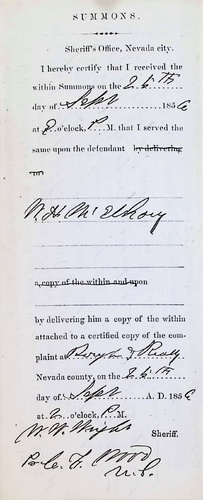 SUMMONS.
Sheriff's Office, Nevada city.
I hereby certify that I received the
within Summons on the 26th
day of Sept 1856
at 2 o'clock, P. M. that I served the
same upon the defendant by delivering
to
W. H. McElhany
a copy of the within and upon
by delivering him a copy of the within
attached to a certified copy of the com-
plaint at Rough & Ready
Nevada county, on the 26th
day of Sept A. D. 1856
at 2 o'clock, P. M.
W. W. Wright Sheriff.
Wood